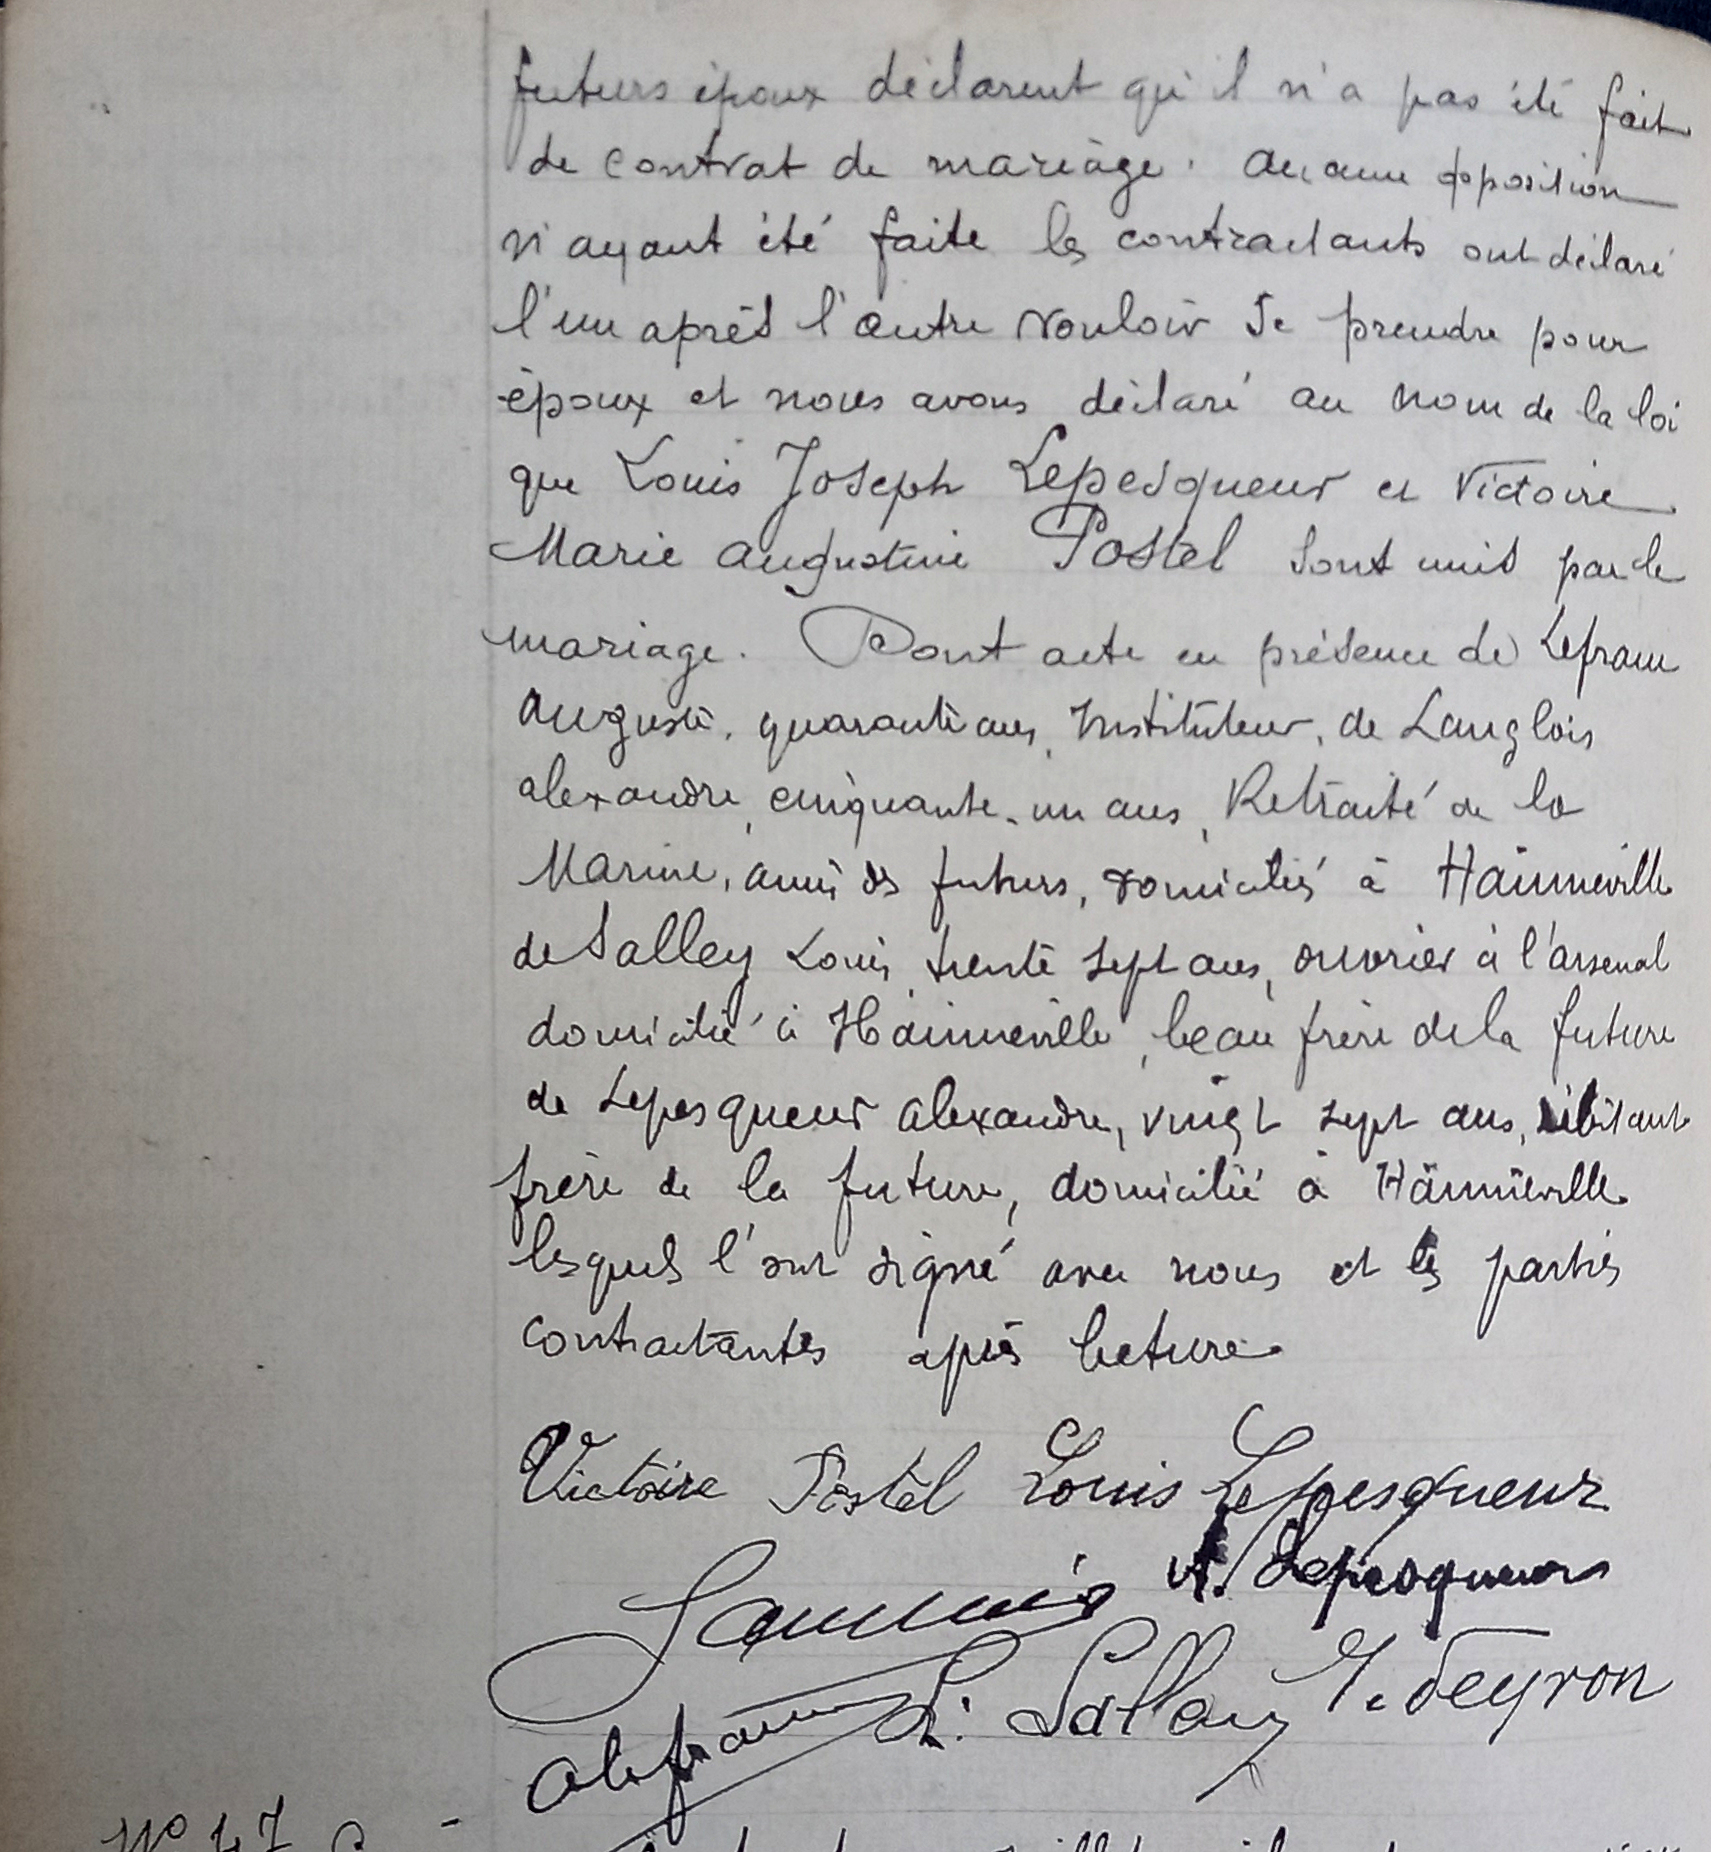 futurs époux déclarent qu'il n'a pas été fait
de contrat de mariage. Aucune opposition
n'ayant été faite les contractants ont déclaré
l'un après l'autre vouloir se prendre pour
époux et nous avons déclaré au nom de la loi
que Louis Joseph Lepesqueur et Victoire
Marie Augustine Postel sont unis par le
mariage. Dont acte en présence de Lefranc
Auguste, quarante ans, Instituteur, de Langlois
alexandre, cinquante-un ans, Retraité de la
Marine, amis des futurs, domiciliés à Hainneville
de Salley Louis, trente sept ans, ouvrier à l'arsenal
domicilié à Hainneville, beau frère de la future
de Lepesqueur alexandre, vingt sept ans,
frère de la future, domicilié à Hainneville
lesquels l'ont signé avec nous et les parties
contractantes après lecture.
Victoire Postel Louis Lepesqueur
A. Lepesqueur
L. Salley
N° 47